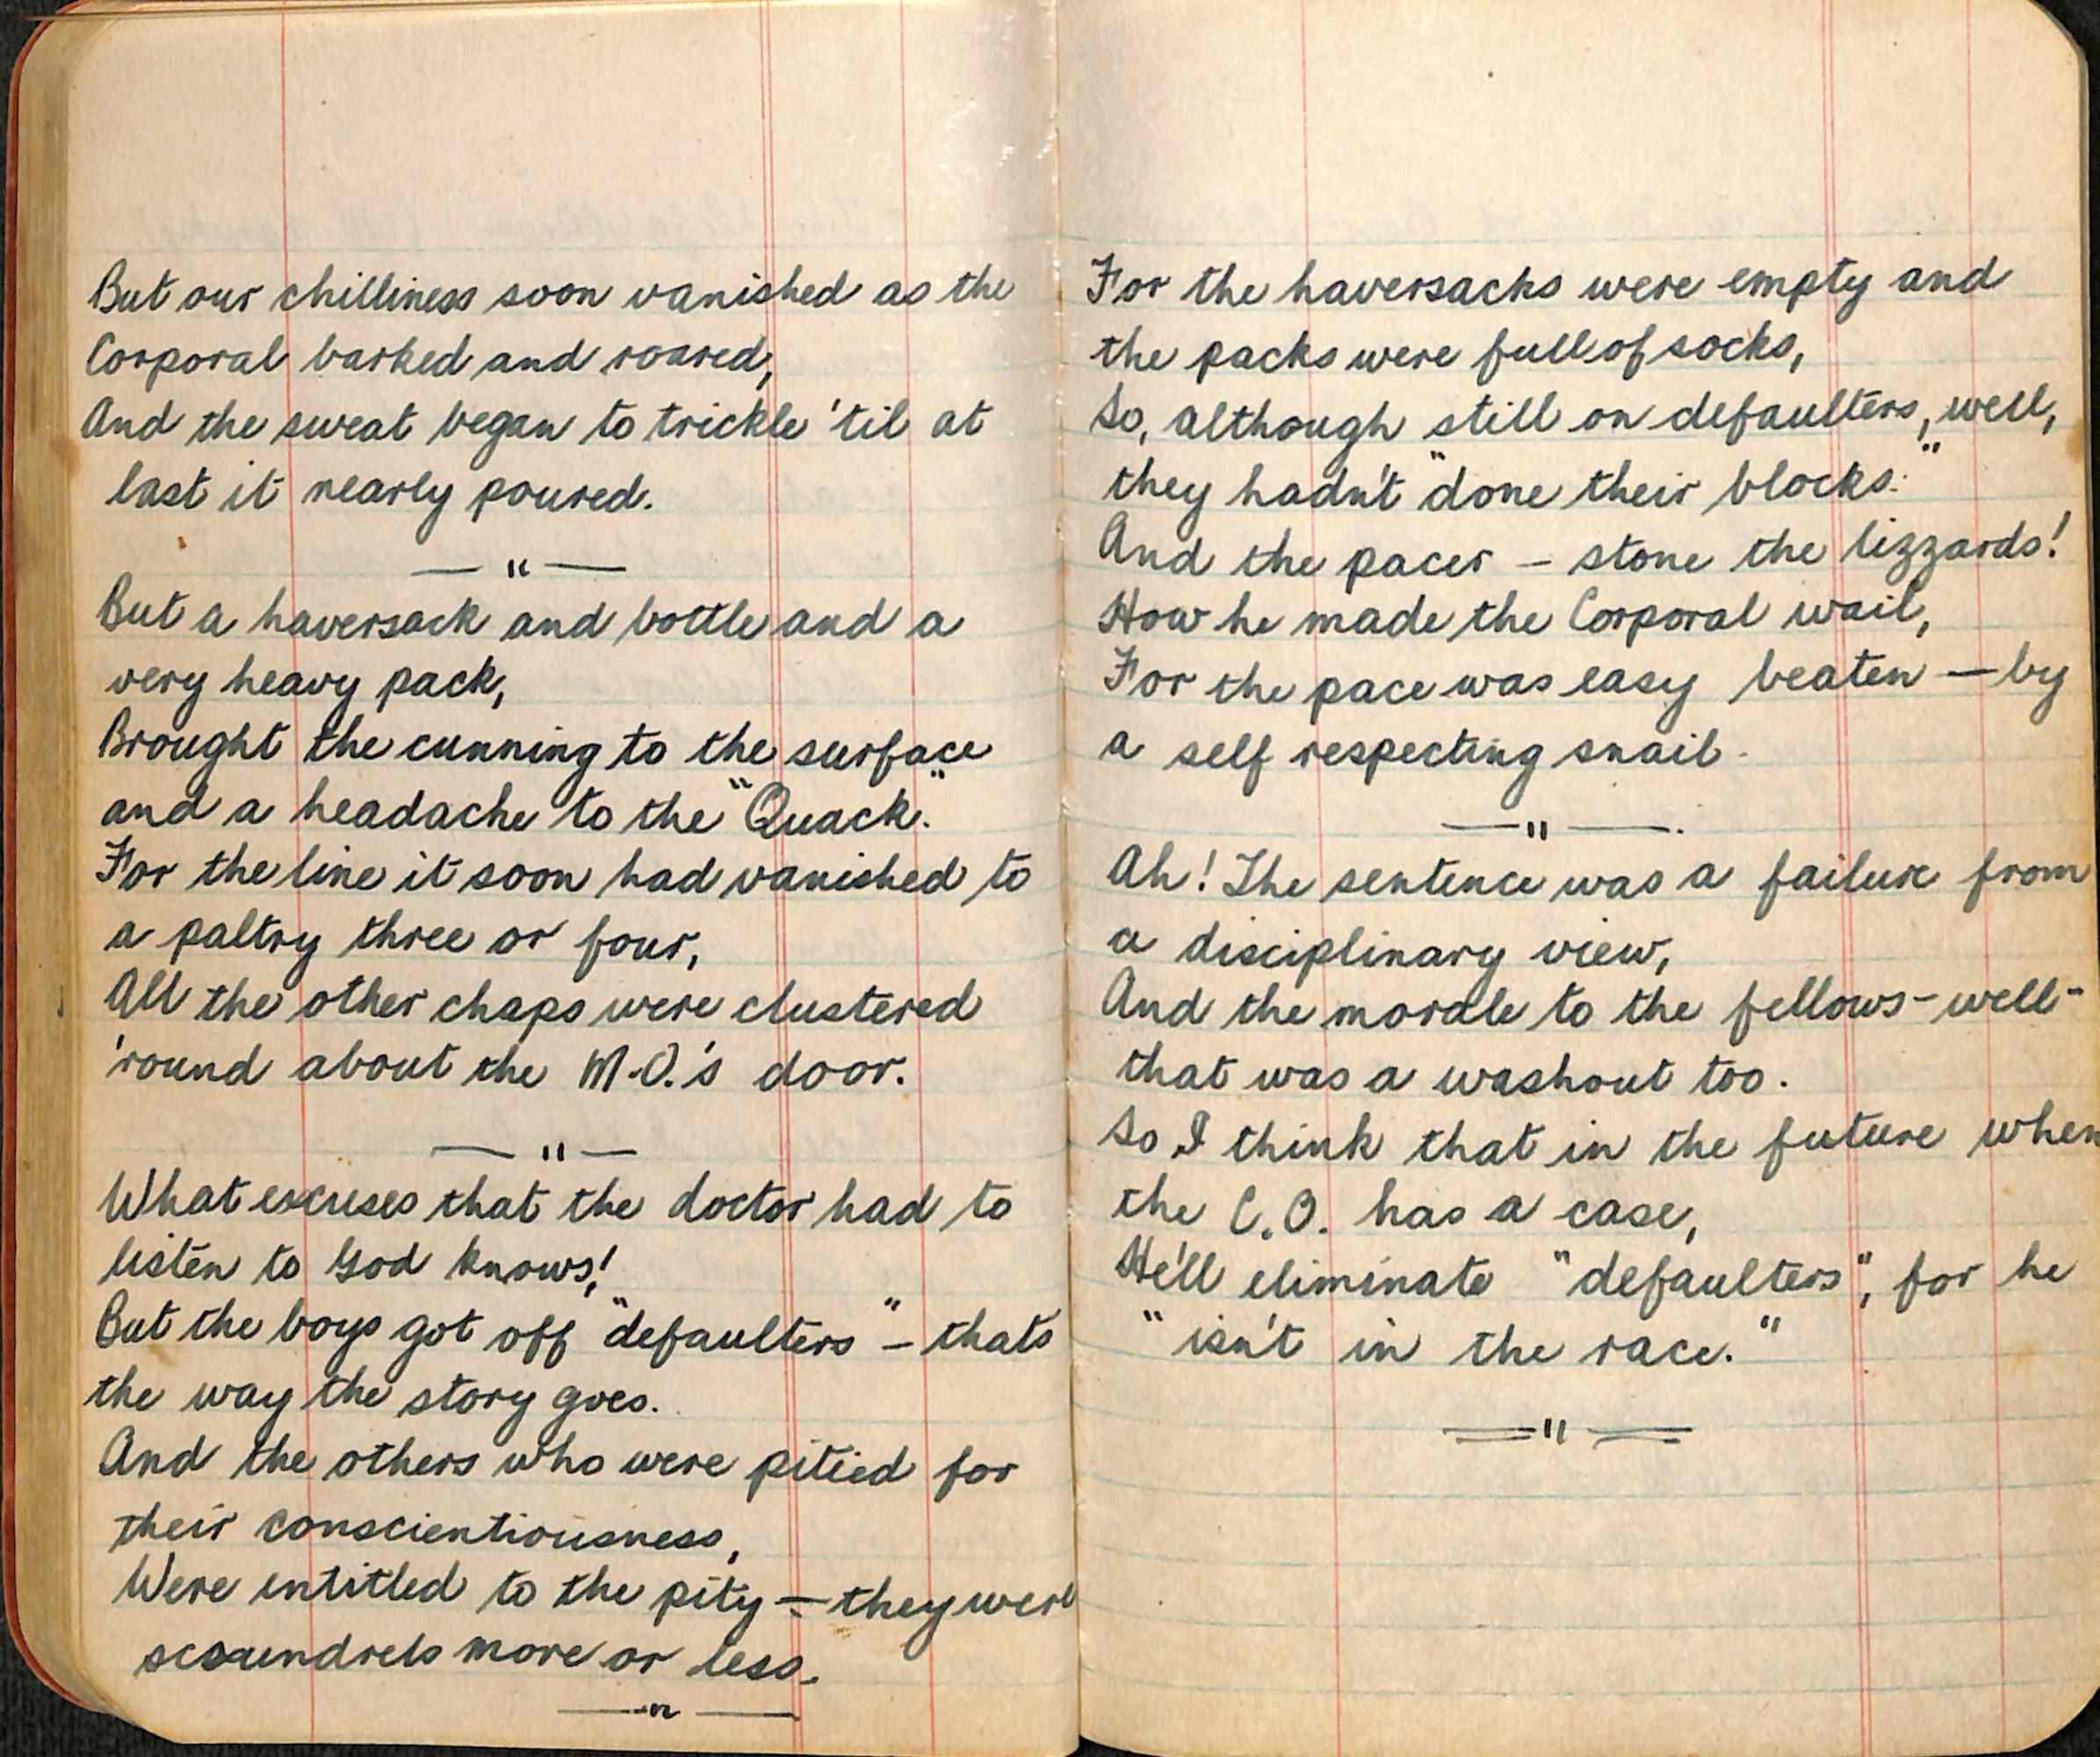 But our chilliness soon vanished as the
Corporal barked and roared,
And the sweat began to trickle 'til at
last it nearly poured.
— " —
But a haversack and bottle and a
very heavy pack,
Brought the cunning to the surface
and a headache to the "Quack."
For the line it soon had vanished to
a paltry three or four,
All the other chaps were clustered
'round about the M.O.'s door.
— " —
What excuses that the doctor had to
listen to God knows!
But the boys got off "defaulters" – thats
the way the story goes.
And the others who were pitied for
their conscientiousness,
Were entitled to the pity – they were
scoundrels more or less.
— " —
For the haversacks were empty and
the packs were full of socks,
So, although still on defaulters, well,
they hadn't "done their blocks."
And the pacer – stone the lizzards!
How he made the Corporal wail,
For the pace was easy beaten – by
a self respecting snail.
— " —
Ah! The sentence was a failure from
a disciplinary view,
And the morale to the fellows – well –
that was a washout too.
So I think that in the future when
the C.O. has a case,
He'll eliminate "defaulters", for he
"isn't in the race."
— " —